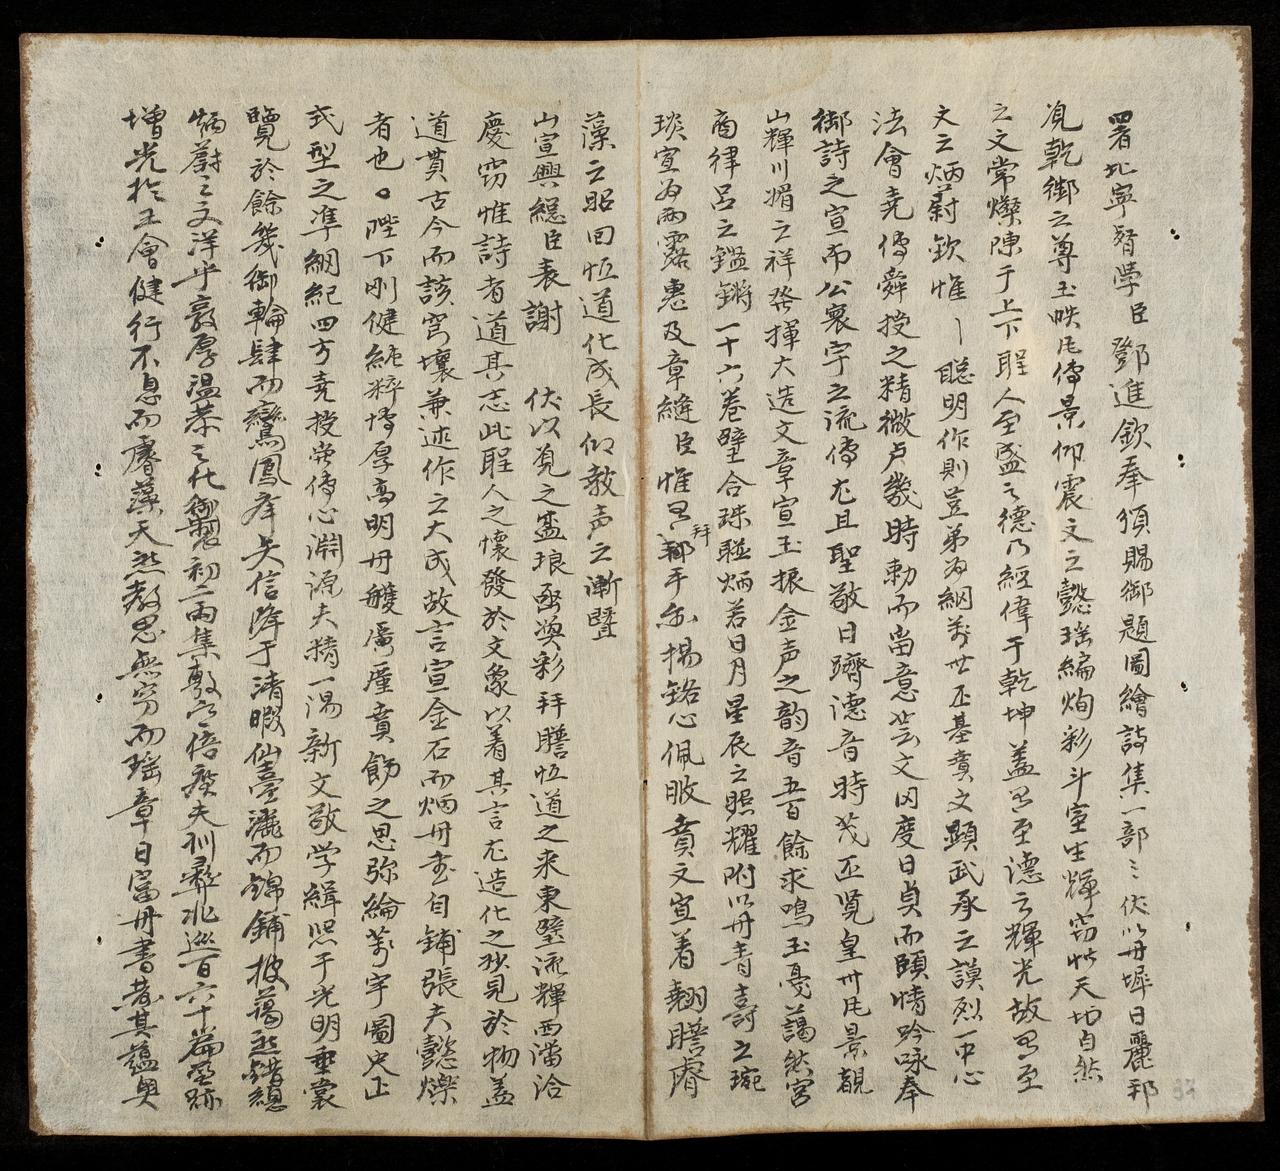 署北寧督學臣鄧進欽奉頒賜御題圖繪詩集一部〻伏以丹墀日麗耶
凴乾御之尊玉帙凡傳景仰震文之懿瑶編炯彩斗室生輝窃惟天功自然
之文常燦陳于上下聖人至盛之德乃經偉于乾坤盖有至德之輝光故有至
文之炳蔚欽惟 聰明作則豈弟為綱萬世丕基賁文顯武承之謨烈一中心
法會堯傳舜授之精微卢幾時勅而畄意芸文冈度日貞而頤情吟咏奉
御詩之宣布公寰宇之流傳尤且聖敬日躋德音時茂丕覽皇州凡景觀
山輝川媚之祥發揮大造文章宣玉振金声之韵音五百餘求鳴玉戞藹然宮
商律呂之鏗鏘一十六卷璧合珠聮炳若日月星辰之照耀附以丹青壽之琬
琰宣為雨露惠及章縫臣惟有拜手 揚銘心佩服賁文宣着翹瞻睿
藻之昭回恆道化成長仰教声之漸曁
山宣興緦臣表謝 伏以 之 琅函奐彩拜瞻恆道之来東璧流輝西瀋洽
慶窃惟詩者道其志此聖人之懷發於文象以着其言尤造化之妙見於物盖
道貫古今而該穹壤兼述作之大成故言宣金石而炳丹 自鋪張夫懿爍
者也。陛下刚健純粹慱厚高明丹艧 廑賁飭之思弥綸萬宇圖史正
式型之準綱紀四方堯授 傳心淵源夫精一湯新文敬学緝熙于光明垂裳
覽於餘幾御輪肆而鸞鳳 矢信降于清暇仙臺灑而錦鋪披蔼然 總
炳蔚之文洋乎敦厚温恭之化御製初二兩集敷 倍 夫訓彝北廵百六十篇
增光於王會健行不息而睿藻天然教思無穷而瑶章日富丹書 其蕴奥
37